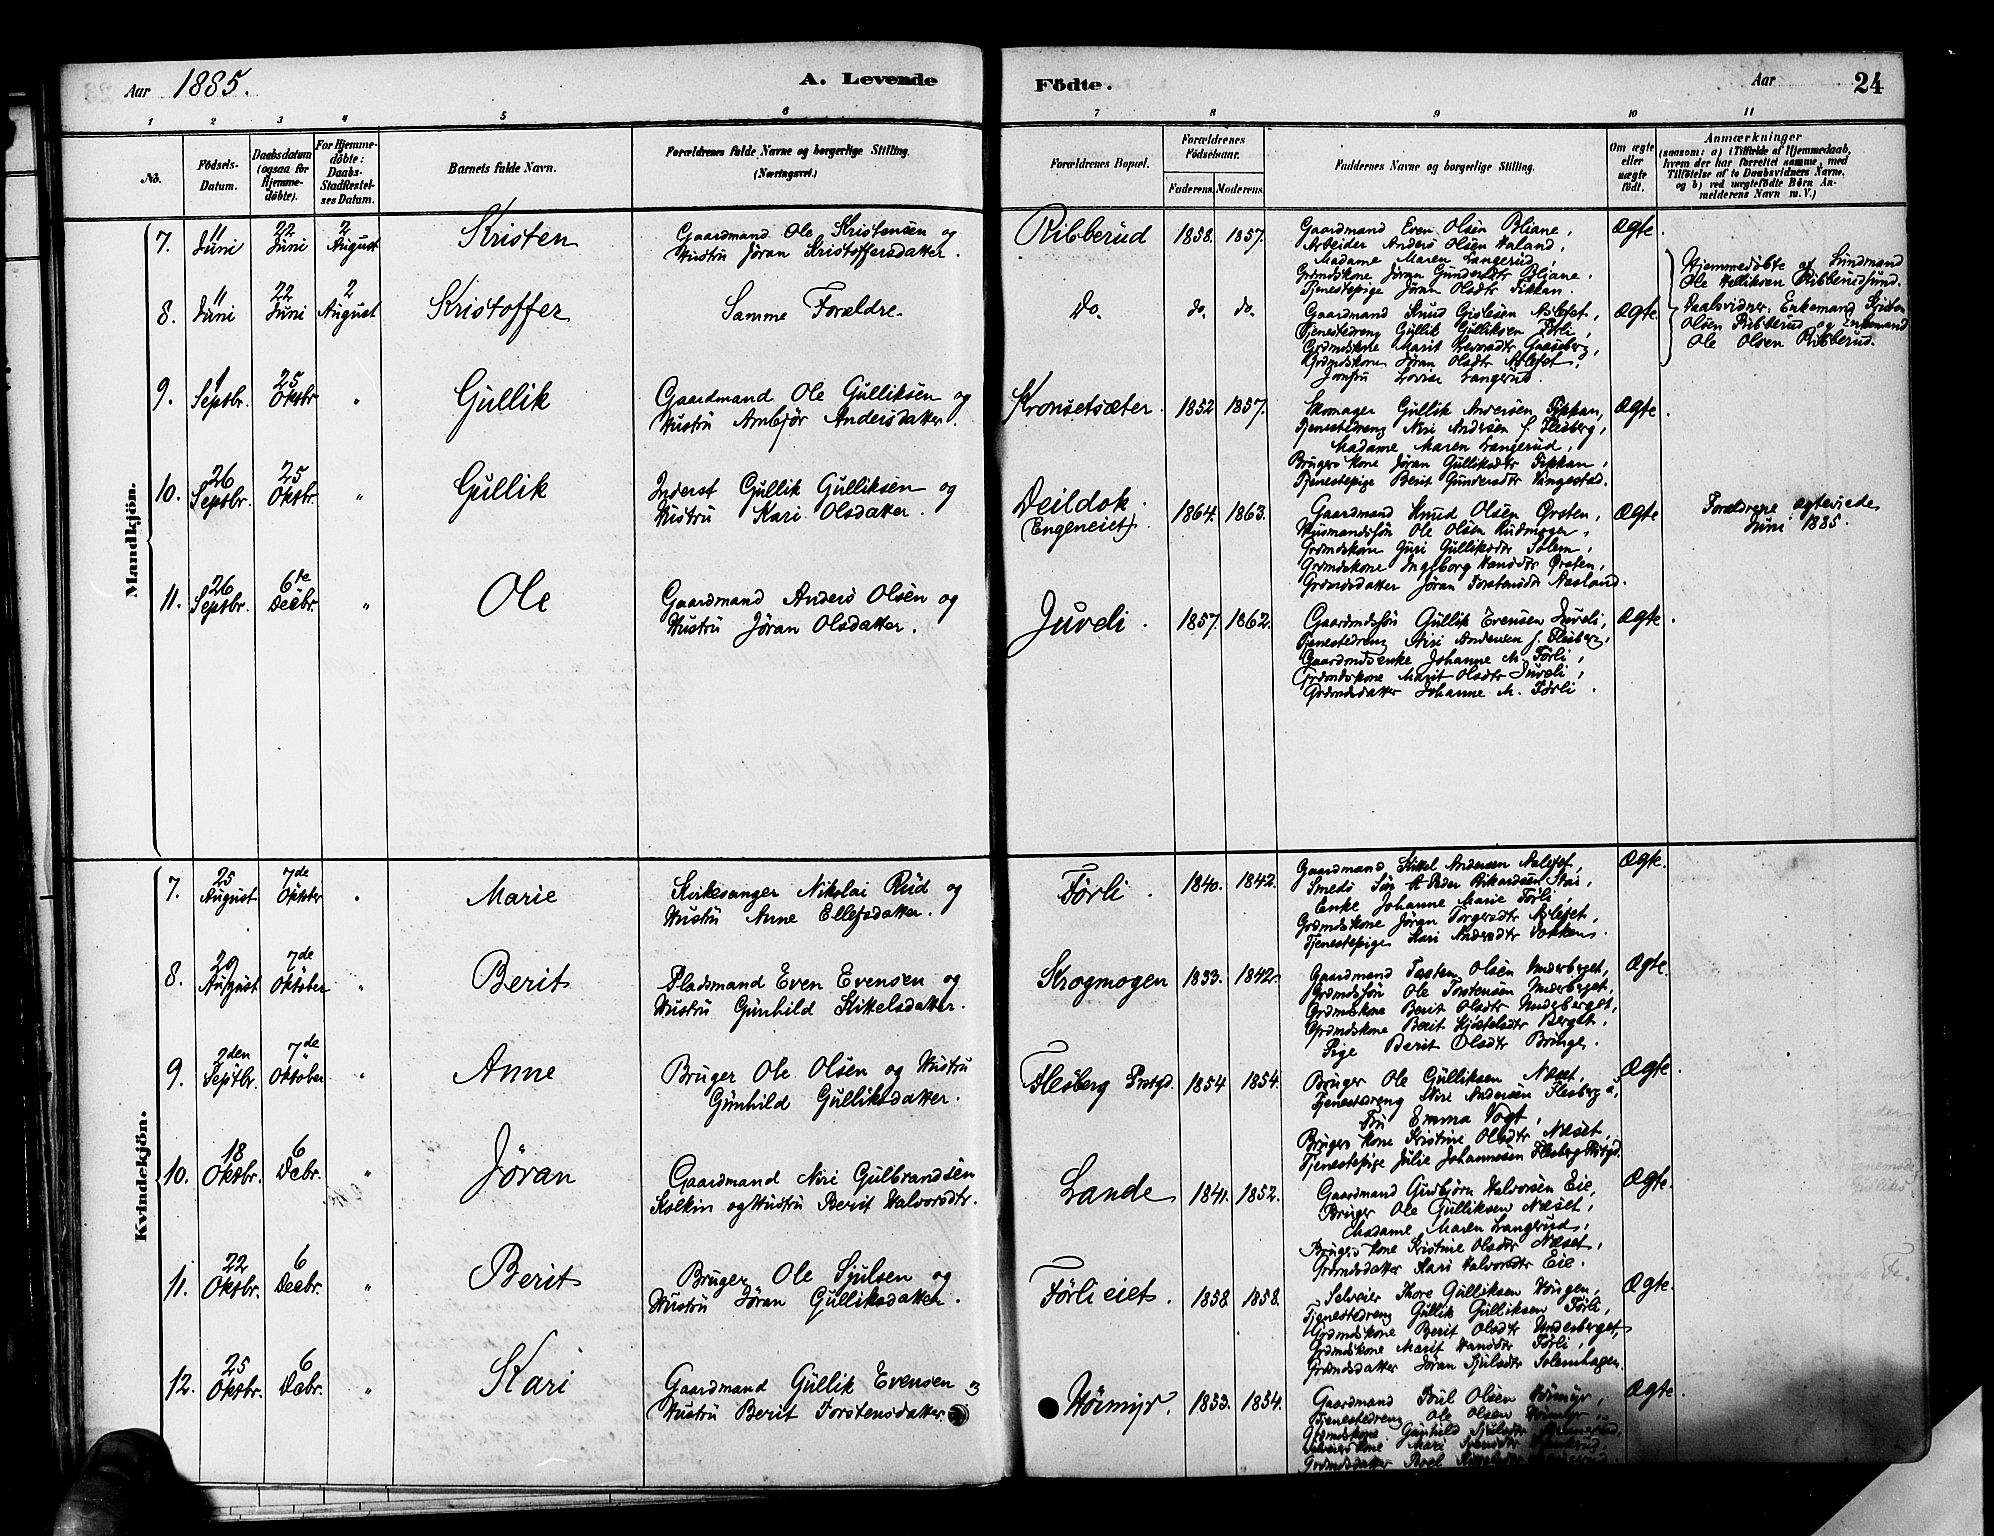 Aar 1885.
A. Levende
Födte.
Aar
24
1 2 3 4 5 6 7 8 9 10 11
No.
Födsels-
Datum.
Daabsdatum
(ogsaa for
Hjemme-
döbte).
For Hjemme-
döbte:
Daabs-
Stadfæstel-
ses Datum.
Barnets fulde Navn.
Forældrenes fulde Navne og borgerlige Stilling.
(Næringsvei.)
Forældrenes Bopæl.
Forældrenes
Födselsaar.
Faderens. Moderens.
Faddernes Navne og borgerlige Stilling.
Om ægte
eller
uægte
födt.
Anmærkninger
(saasom: a) i Tilfælde af Hjemmedaab,
hvem der har forrettet samme, med
Tilföielse af to Daabsvidners Navne,
og b) ved uægtefödte Börn An-
melderens Navn m. V.)
Mandkjön.
7. 11 Juni 22 Juni 2 August
Kristen
Gaardmand Ole Kristensen og
Hustru Jöran Kristoffersdatter.
Ribberud 1858. 1857.
Gaardmand Even Olsen Bliane,
Arbeider Anders Olsen Haland,
Madame Maren Langerud,
Grdmdskone Jöran Gundersdtr Bliane.
Tjenestepige Jöran Olsdtr Fikkan.
Ægte.
Hjemmedöbte af Sundmand
Ole Helliksen Ribberudsund.
Daabsvidner. Enkemand Kristen
Olsen Ribberud og Enkemand
Ole Olsen Ribberud.
8. 11 Juni 22 Juni 2 August
Kristoffer
Samme Forældre.
do. do. do.
Gaardmand Knud Gislesen Aslefet,
Tjenestedreng Gullik Gulliksen Förli,
Grdmdskone Marit Gaaseberg,
Grdmdskone Jöran Olsdtr Aslefet,
Jomfru Lovise Langerud.
Ægte.
9. 1 Septbr. 25 Oktbr. "
Gullik
Gaardmand Ole Gulliksen og
Hustru Anbjör Andersdatter.
Kronsetsæter. 1852 1857.
Skomager Gullik Andersen Fikkan,
Tjenestedreng Niri Andersen f. Flesberg,
Madame Maren Langerud,
Brugers kone Jöran Gulliksdtr Fikkan,
Tjenestepige Berit Gundersdtr Vangestad.
Ægte.
10. 26 Septbr. 25 Oktbr. "
Gullik
Inderst Gullik Gulliksen og
Hustru Kari Olsdatter.
Deildok
(Engeneiet). 1864. 1863.
Gaardmand Knud Olsen Örsten,
Husmandssön Ole Olsen Rudmogen,
Grdmdskone Guri Gulliksdtr Solem,
Grdmdskone Ingeborg Hansdtr Örsten,
Grdmdsdatter Jöran Torstensdtr Aasland.
Ægte
Forældrene ægteviede
Juni 1885.
11. 26 Septbr. 6te Decbr. "
Ole
Gaardmand Anders Olsen og
Hustru Jöran Olsdatter.
Juveli. 1857. 1862.
Gaardmdssön Gullik Evensen Juveli,
Tjenestedreng Niri Andersen f. Flesberg,
Gaardmdsenke Johanne M. Förli,
Grdmdskone Marit Olsdtr Juveli,
Grdmdsdatter Johanne M. Förli.
Ægte.
Kvindekjön.
7. 25 August 7de Oktober "
Marie
Kirkesanger Nikolai Rud og
Hustru Anne Ellefsdatter.
Förli. 1840. 1842.
Gaardmand Kittel Andersen Aslefet,
Enke Johanne Marie Förli,
Grdmdskone Jöran Torgersdtr Aslefet,
Tjenestepige Kari Andersdtr Bakken.
Ægte.
8. 29 August 7de Oktober "
Berit
Pladsmand Even Evensen og
Hustru Gunhild Kittelsdatter.
Skogmogen 1833. 1842.
Gaardmand Torsten Olsen Underberget,
Grdmdssön Ole Torstensen Underberget,
Grdmdskone Berit Olsdtr Underberget,
Grdmdskone Berit Kjöstelsdtr Berget,
Pige Berit Olsdtr Bringe.
Ægte.
9. 2den Septbr. 7de Oktober "
Anne
Bruger Ole Olsen og Hustru
Gunhild Gulliksdatter.
Flesberg Prstgd. 1854 1854.
Bruger Ole Gulliksen Næset,
Tjenestedreng Niri Andersen Flesberg
Fru Emma Vogt,
Brugers kone Kristine Olsdtr Næset,
Tjenestepige Julie Johannesen Flesberg Prstgd.
Ægte.
10. 18 Oktbr. 6 Decbr. "
Jöran
Gaardmand Niri Gulbrandsen
Kolkin og Hustru Berit Halvorsdtr.
Lande 1841. 1852.
Gaardmand Gudbjörn Halvorsen Eie,
Bruger Ole Gulliksen Næset,
Madame Maren Langerud,
Brugers kone Kristine Olsdtr Næset,
Grdmdsdatter Kari Halvorsdtr Eie.
Ægte.
11. 22 Oktbr. 6 Decbr. "
Berit
Bruger Ole Sjulsen og
Hustru Jöran Gulliksdatter.
Förlieiet. 1858. 1858.
Selveier Thore Gulliksen
Tjenestedreng Gullik Gulliksen Förli,
Grdmdskone Berit Olsdtr Underberget,
Grdmdskone Marit Hansdtr Förli,
Grdmdsdatter Jöran Sjulsdtr Solemhagen.
Ægte.
12. 25 Oktbr. 6 Decbr. "
Kari
Gaardmand Gullik Evensen og
Hustru Berit Torstensdatter.
Hörmyr. 1833. 1854.
Gaardmand Olsen Hörmyr,
Tjenestedreng Ole Olsen Hörmyr,
Grdmdskone Gunhild Sjulsdtr
Grdmdsdatter
Ægte.